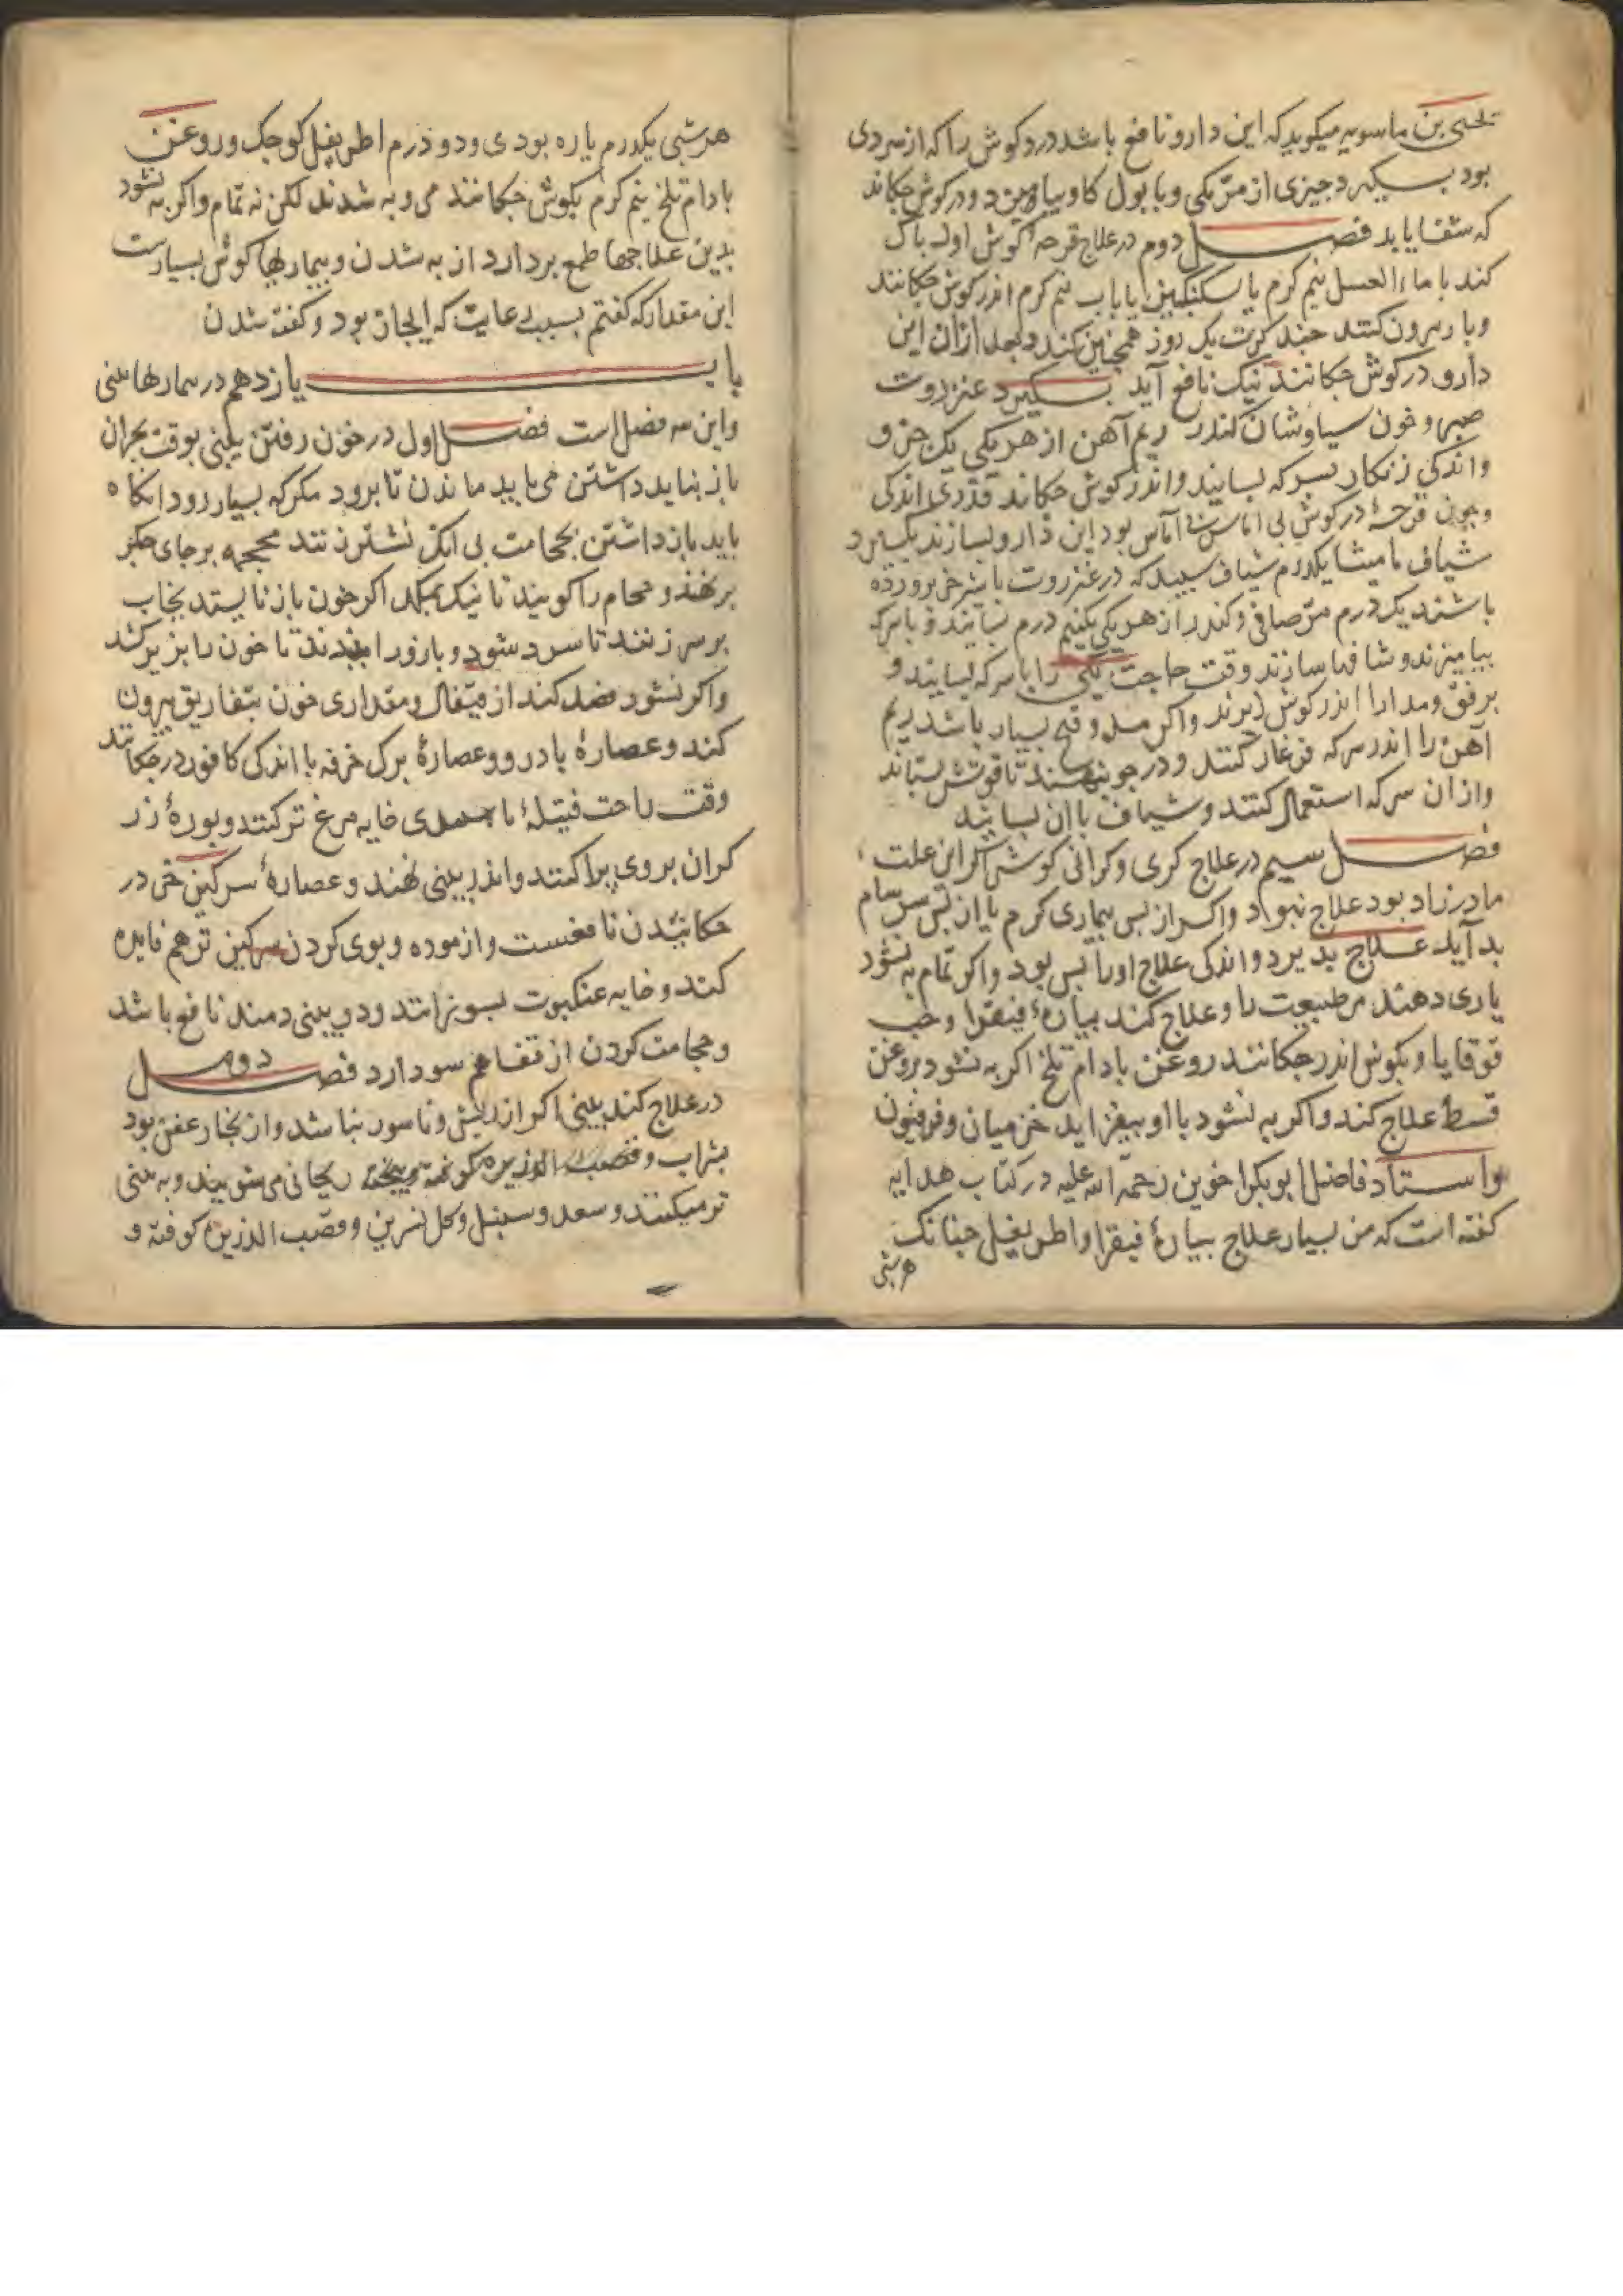 یحیی بن ماسویه میکوید که این دارو نافع باشد درد کوش را که از سردی
بود بسکیرد جیزی از مرّ مکی و با بول کاو بیامیزد و در کوش جکاند
که شفا یابد فصل دوم در علاج قرحهٔ کوش اول باک
کند با ماء العسل نیم کرم یا سکنکبین یا باب نیم کرم اندر کوش جکانند
و باز بیرون کنند جند کرت یک روز همجنین کند و بعد ازان این
دارو در کوش جکانند نیک نافع آید بسکیرد عنزروت
صبر و خون سیاوشان کندر ریم آهن از هر یکی یک جزو
و اندکی زنکار بسرکه بسایند و اندر کوش جکاند قدری اندکی
و جون قرحهٔ در کوش بی آماس بود این دارو بسازند بکیرد
شیاف مامیثا یکدرم شیاف سبید که در عنزروت با شیر خر برورده
باشند یک درم مرّ صافی و کندر از هر یکی یکنیم درم بسایند و با سرکه
بیامیزند و شافها سازند وقت حاجت یکی را با سرکه بسایند و
برفق و مدارا اندر کوش برند و اکر مده و قیح بسیار باشد ریم
آهن را اندر سرکه فرغار کنند و در جو نهند تا قوتش بستاند
و از ان سرکه استعمال کنند و شیاف با ان بسایند
فصل سیم در علاج کری و کرانی کوش اکر این علت
مادرزاد بود علاج نبود و اکر از بس بیماری کرم یا از بس سرسام
بد آید علاج بذیرد و اندکی علاج او را بس بود و اکر تمام به نشود
یاری دهند مر طبیعت را و علاج کند بیارهٔ فیقرا و حب
قوقایا و بکوش اندر جکانند روغن بادام تلخ اکر به نشود بروغن
قسط علاج کند و اکر به نشود با او بیفزاید خزمیان و فرفیون
و استاد فاضل ابو بکر اخوین رحمة الله علیه در کتاب هدایه
کفته است که من بسیار علاج بیارهٔ فیقرا و اطریفل جنانک
هرشبی
هرشبی یکدرم یاره بودی و دو درم اطریفل کوجک و روغن
بادام تلخ نیم کرم بکوش جکانند می و به شدند لکن نه تمام و اکر به نشود
بدین علاجها طمع بردارد از به شدن و بیماریها کوش بسیارست
این مقدار که کفتم بسبب رعایت که ایجاز بود و کفته شدن
باب یازدهم در بیماریها بینی
و این سه فصل است فصل اول در خون رفتن بینی بوقت بحران
باز نباید داشتن می باید ماندن تا برود مکر که بسیار رود انکاه
باید باز داشتن بحجامت بی انک نشتر زنند محجمه بر جای جکر
برنهند و حجام را کویند تا نیک بمکد اکر خون باز نایستد بخاب
بر سر زنند تا سرد شود و بازو را ببندند تا خون را بزیر کشد
و اکر نشود فصد کند از قیفال و مقداری خون بتفاریق بیرون
کند و عصارهٔ بادروو عصارهٔ برک خرفه با اندکی کافور در جکانند
وقت راحت فتیلهٔ با سبیدی خایه مرغ تر کنند و بورهٔ زر
کران بروی براکنند و اندر بینی نهند و عصارهٔ سرکین خر در
جکانیدن نافعست و ازموده و بوی کردن سرکین تر هم فایده
کند و خانه عنکبوت بسوزانند و در بینی دمند نافع باشد
و حجامت کردن از قفا هم سود دارد فصل دوم
در علاج کند بینی اکر از ریش و ناسور نباشد و از بخار عفن بود
بشراب و قصب الذریره کوفته و بیخته ریحانی می شویند و به بینی
تر میکنند و سعد و سنبل و کل نسرین و قصب الذریره کوفته و